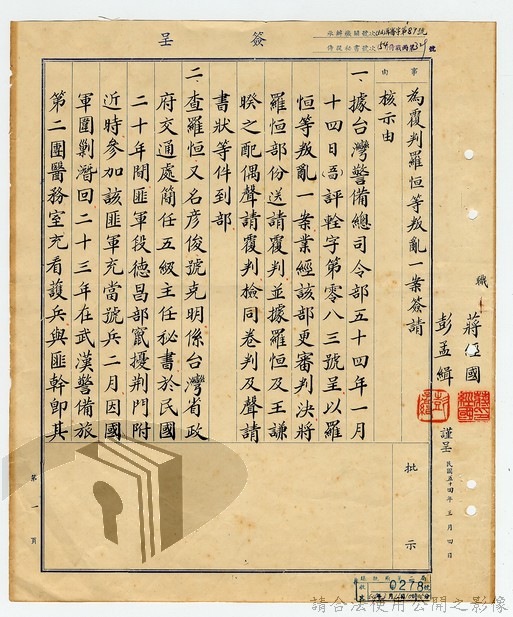 簽呈
承辦機關號次
侍從秘書號次
號
事由
為覆判羅恒等叛亂一案簽請
核示由
職
蔣經國
彭孟緝
謹呈
民國五十四年三月四日
一、據台灣警備總司令部五十四年一月
十四日(音)評銓字第零八三號呈以羅
恒等叛亂一案業經該部更審判決將
羅恒部份送請覆判並據羅恒及王謙
暌之配偶聲請覆判檢同卷判及聲請
書狀等件到部
二、查羅恒又名彦俊號克明係台灣省政
府交通處簡任五級主任秘書於民國
二十年間匪軍段德昌部竄擾荆門附
近時參加該匪軍充當號兵二月因國
軍圍剿潛回二十三年在武漢警備旅
第二團醫務室充看護兵與匪幹郎其
批示
第一頁
0278
請合法使用公開之影像